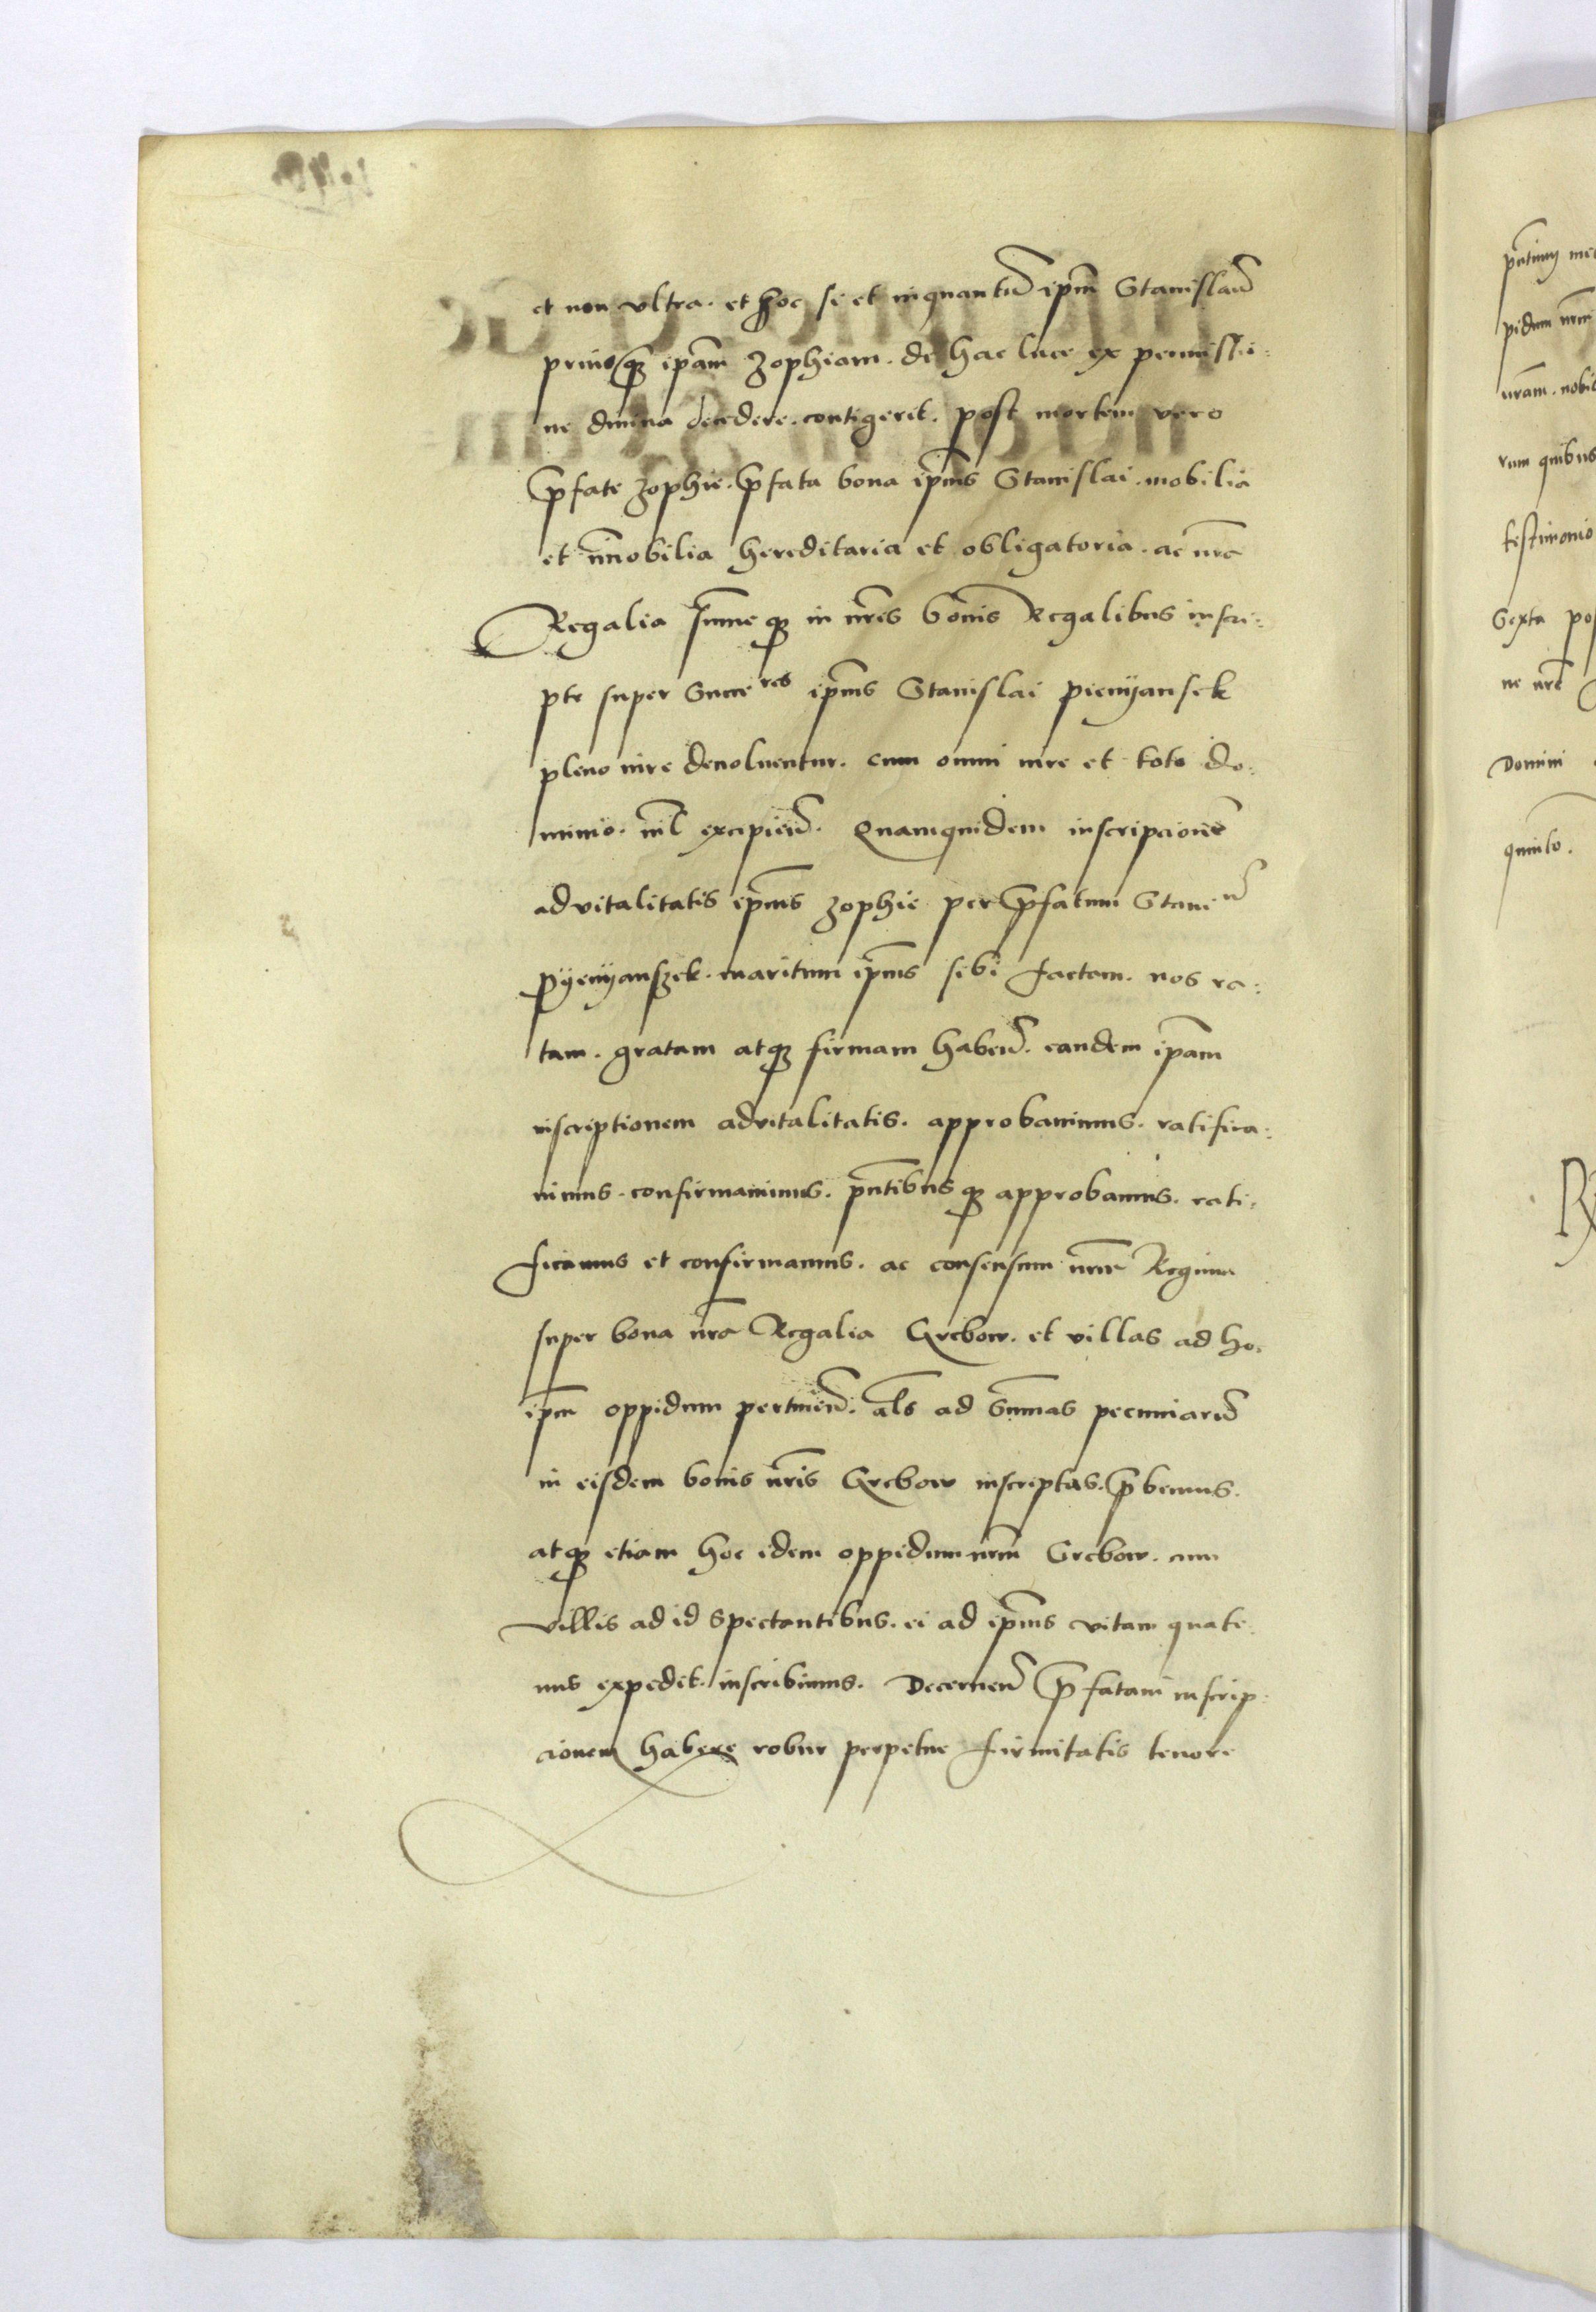 et non vltra. et hoc si et inquantū ip̄m Stanislaū
priusq̨ ip̄am Zophiam. de hac luce ex permissio:
ne diuina decedere. contigerit. post mortem vero
p̄fate Zophie. p̄fata bona ip̄ius Stanislai. mobilia
et īmobilia hereditaria et obligatoria. ac nr̄a
Regalia sum̄eq̨ in nr̄is bonis Regalibus inscri:
pte super Succeres ip̄ius Stanislai Pienyansek
pleno iure deuoluentur. cum omni iure et toto do:
minio. nil̄ excipień. Quamquidem inscripcionē
aduitalitatis ip̄ius Zophie per p̄fatum Stanū
Pyenyanszek. maritum ip̄ius sibi factam. nos ra:
tam. gratam atq̨ firmam habeń. eandem ip̄am
inscriptionem aduitalitatis. approbauimus. ratifica:
uimus. confirmauimus. pn̄tibusq̨ approbamus. rati:
ficamus et confirmamus. ac consensum nr̄m Regium
super bona nr̄a Regalia Grebow. et villas ad ho.
ip̄m oppidum pertineń. al̄s ad Sum̄as pecuniarū
in eisdem bonis nr̄is Grebow inscriptas. p̄bemus.
atq̨ etiam hoc idem oppidum nr̄m Grebow. cum
villis ad id spectantibus. ei ad ip̄ius vitam quate:
nus expedit. inscribimus. Decerneń p̄fatam inscrip:
cionem habere robur perpetue firmitatis tenore
pn̄tium
pidum nr̄m
nr̄am. nobis
rum quibus
testimonio
Sexta
ne nr̄e
Domini
quinto.